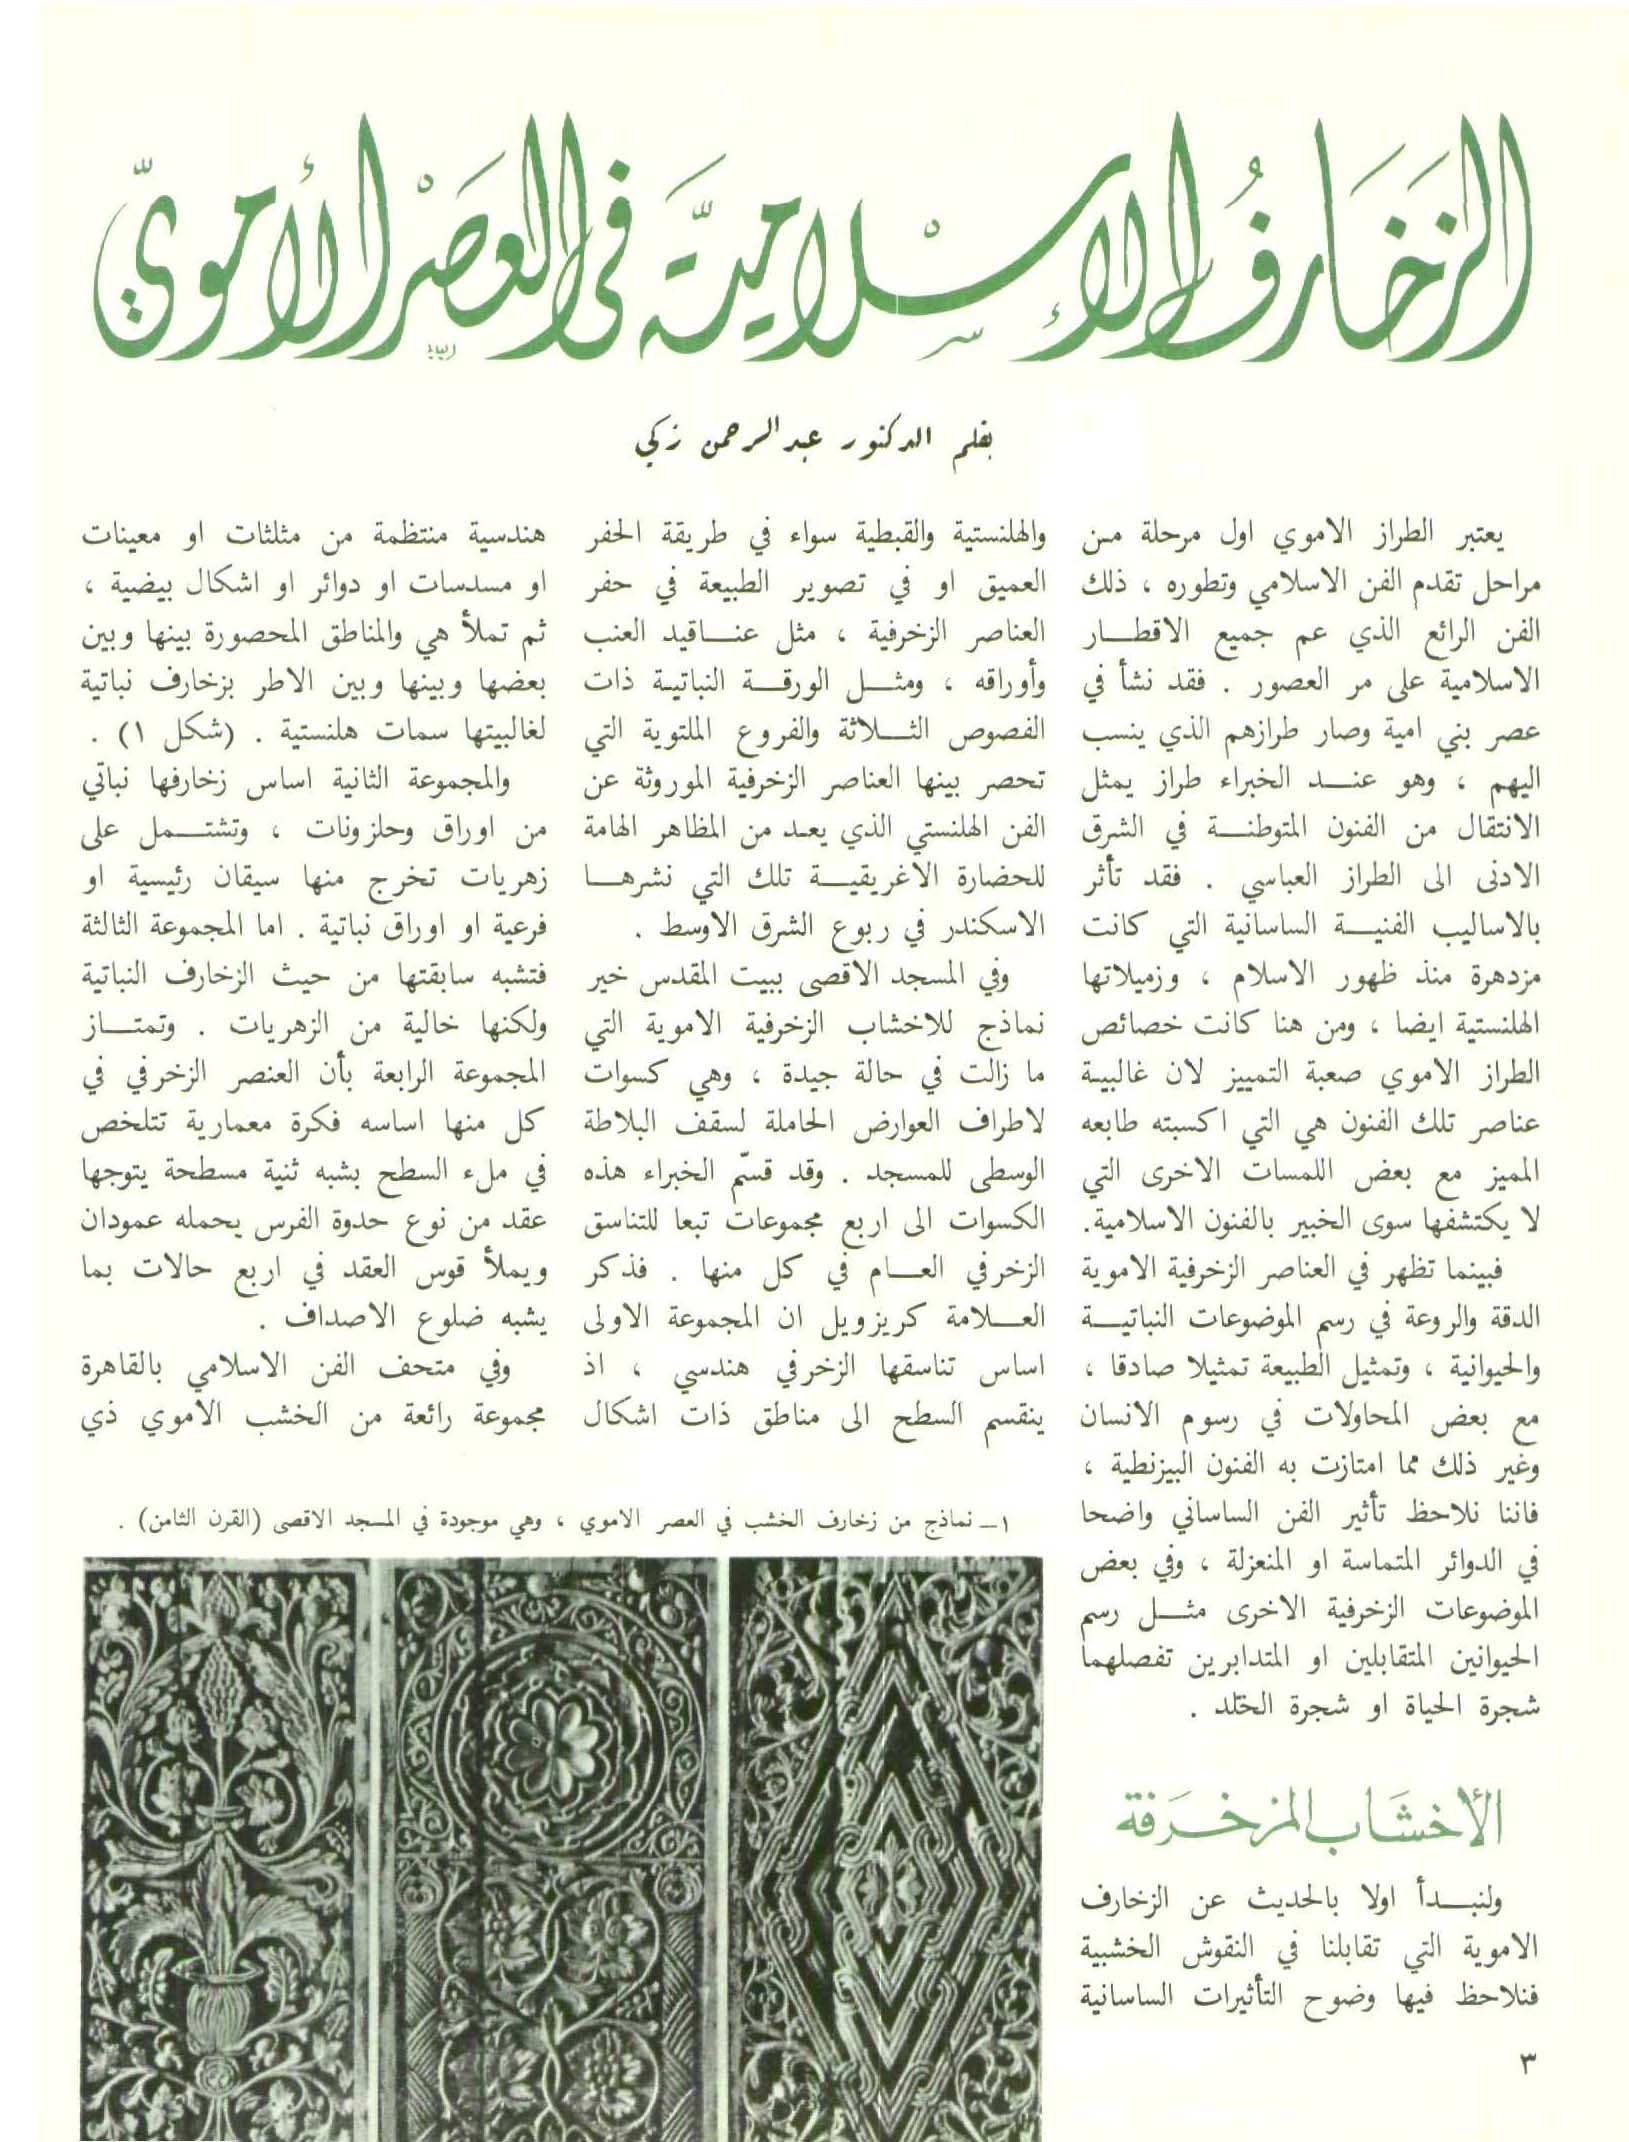 الزخارف الإسلامية في العصر الأموي
بقلم الدكتور عبدالرحمن زكي
يعتبر الطراز الاموي اول مرحلة من
مراحل تقدم الفن الاسلامي وتطوره ، ذلك
الفن الرائع الذي عم جميع الاقطار
الاسلامية على مر العصور . فقد نشأ في
عصر بني امية وصار طرازهم الذي ينسب
اليهم ، وهو عند الخبراء طراز يمثل
الانتقال من الفنون المتوطنة في الشرق
الادنى الى الطراز العباسي . فقد تأثر
بالاساليب الفنية الساسانية التي كانت
مزدهرة منذ ظهور الاسلام ، وزميلاتها
الهلنستية ايضا ، ومن هنا كانت خصائص
الطراز الاموي صعبة التمييز لان غالبية
عناصر تلك الفنون هي التي اكسبته طابعه
المميز مع بعض اللمسات الاخرى التي
لا يكتشفها سوى الخبير بالفنون الاسلامية.
فبينما تظهر في العناصر الزخرفية الاموية
الدقة والروعة في رسم الموضوعات النباتية
والحيوانية ، وتمثيل الطبيعة تمثيلا صادقا ،
مع بعض المحاولات في رسوم الانسان
وغير ذلك مما امتازت به الفنون البيزنطية ،
فاننا نلاحظ تأثير الفن الساساني واضحا
في الدوائر المتماسة او المنعزلة ، وفي بعض
الموضوعات الزخرفية الاخرى مثل رسم
الحيوانين المتقابلين او المتدابرين تفصلهما
شجرة الحياة او شجرة الخلد .
الأخشاب المزخرفة
ولنبدأ اولا بالحديث عن الزخارف
الاموية التي تقابلنا في النقوش الخشبية
فنلاحظ فيها وضوح التأثيرات الساسانية
والهلنستية والقبطية سواء في طريقة الحفر
العميق او في تصوير الطبيعة في حفر
العناصر الزخرفية ، مثل عناقيد العنب
وأوراقه ، ومثل الورقة النباتية ذات
الفصوص الثلاثة والفروع الملتوية التي
تحصر بينها العناصر الزخرفية الموروثة عن
الفن الهلنستي الذي يعد من المظاهر الهامة
للحضارة الاغريقية تلك التي نشرها
الاسكندر في ربوع الشرق الاوسط .
وفي المسجد الاقصى ببيت المقدس خير
نماذج للاخشاب الزخرفية الاموية التي
ما زالت في حالة جيدة ، وهي كسوات
لاطراف العوارض الحاملة لسقف البلاطة
الوسطى للمسجد . وقد قسّم الخبراء هذه
الكسوات الى اربع مجموعات تبعا للتناسق
الزخرفي العام في كل منها . فذكر
العلامة كريزويل ان المجموعة الاولى
اساس تناسقها الزخرفي هندسي ، اذ
ينقسم السطح الى مناطق ذات اشكال
هندسية منتظمة من مثلثات او معينات
او مسدسات او دوائر او اشكال بيضية ،
ثم تملأ هي والمناطق المحصورة بينها وبين
بعضها وبينها وبين الاطر بزخارف نباتية
لغالبيتها سمات هلنستية . (شكل ١) .
والمجموعة الثانية اساس زخارفها نباتي
من اوراق وحلزونات ، وتشتمل على
زهريات تخرج منها سيقان رئيسية او
فرعية او اوراق نباتية . اما المجموعة الثالثة
فتشبه سابقتها من حيث الزخارف النباتية
ولكنها خالية من الزهريات . وتمتاز
المجموعة الرابعة بأن العنصر الزخرفي في
كل منها اساسه فكرة معمارية تتلخص
في ملء السطح بشبه ثنية مسطحة يتوجها
عقد من نوع حدوة الفرس يحمله عمودان
ويملأ قوس العقد في اربع حالات بما
يشبه ضلوع الاصداف .
وفي متحف الفن الاسلامي بالقاهرة
مجموعة رائعة من الخشب الاموي ذي
١ـ نماذج من زخارف الخشب في العصر الاموي ، وهي موجودة في المسجد الاقصى (القرن الثامن) .
٣